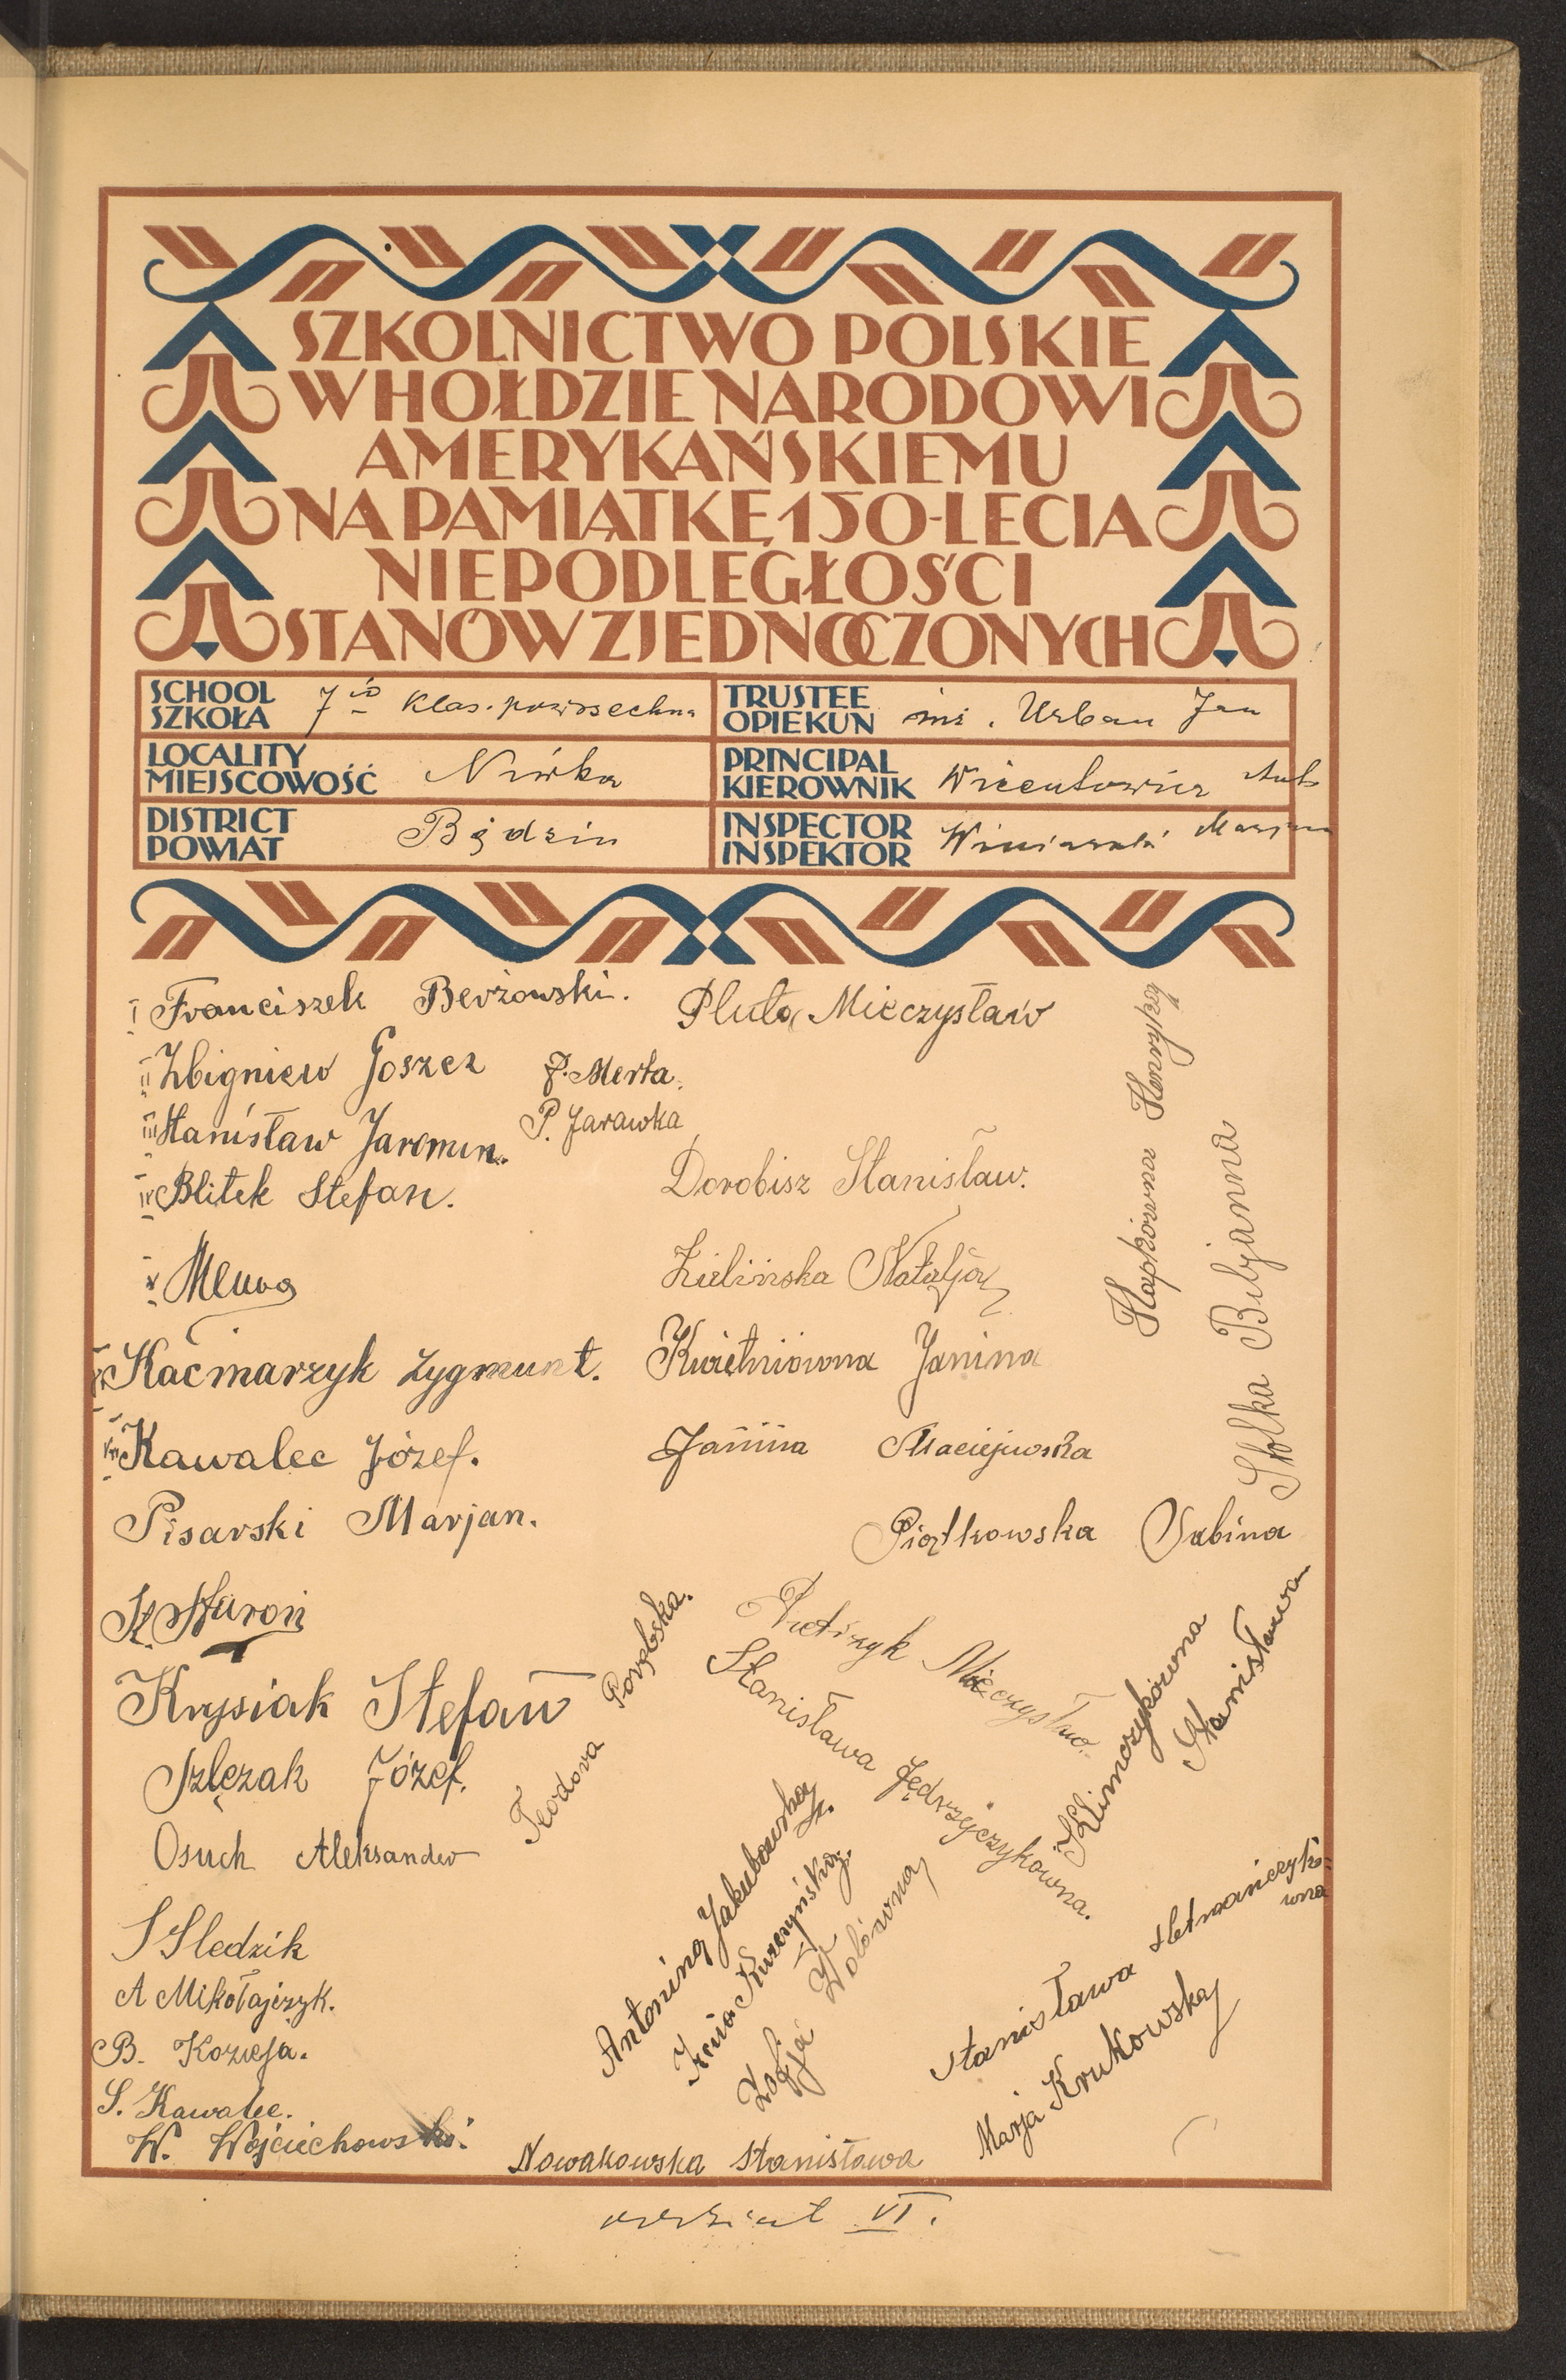 SZKOLNICTWO POLSKIE
W HOŁDZIE NARODOWI
AMERYKAŃSKIEMU
NA PAMIĄTKĘ 150-LECIA
NIEPODLEGŁOŚCI
STANÓW ZJEDNOCZONYCH
SCHOOL
SZKOŁA
7 io klas. powszechna
TRUSTEE
OPIEKUN
inż. Urban Jan
LOCALITY
MIEJSCOWOŚĆ
Niwka
PRINCIPAL
KIEROWNIK
Wicentowicz Ant
DISTRICT
POWIAT
Będzin
INSPECTOR
INSPEKTOR
Winiarski Marjan
I Franciszek Berżowski.
Pluta Mieczysław
II Zbigniew Goszcz
P. Merta.
III Stanisław Jaromin.
P. Jarawka
IV Blitek Stefan.
Dorobisz Stanisław.
V
Zielińska Natalja
Kaćmarzyk Zygmunt.
Kwietniówna Janina
Kawalec Józef.
Janina Maciejewska
Pisarski Marjan.
Piątkowska Sabina
Hapkówna Henryka
Stolka Biljanna
St. Huroń
Krysiak Stefan
Szlęzak Józef.
Osuch Aleksander
Teodora Porębska.
Pietrzyk Mieczysław.
Stanisława Jędrzejczykowna.
Klimczykówna
Stanisława
Antonina Jakubowska
Irena Kuczyńska.
Zofja Wolówna
Stanisława Hetmańczyko-
wna
Marja Krukowska
S Sledzik
A Mikołajczyk.
B. Kozieja.
S. Kawalec.
W. Wojciechowski.
Nowakowska Stanisława
oddział VI.